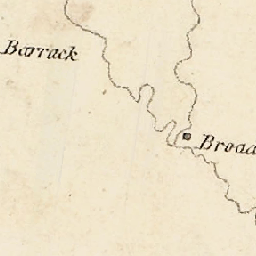 Barrack
Broad